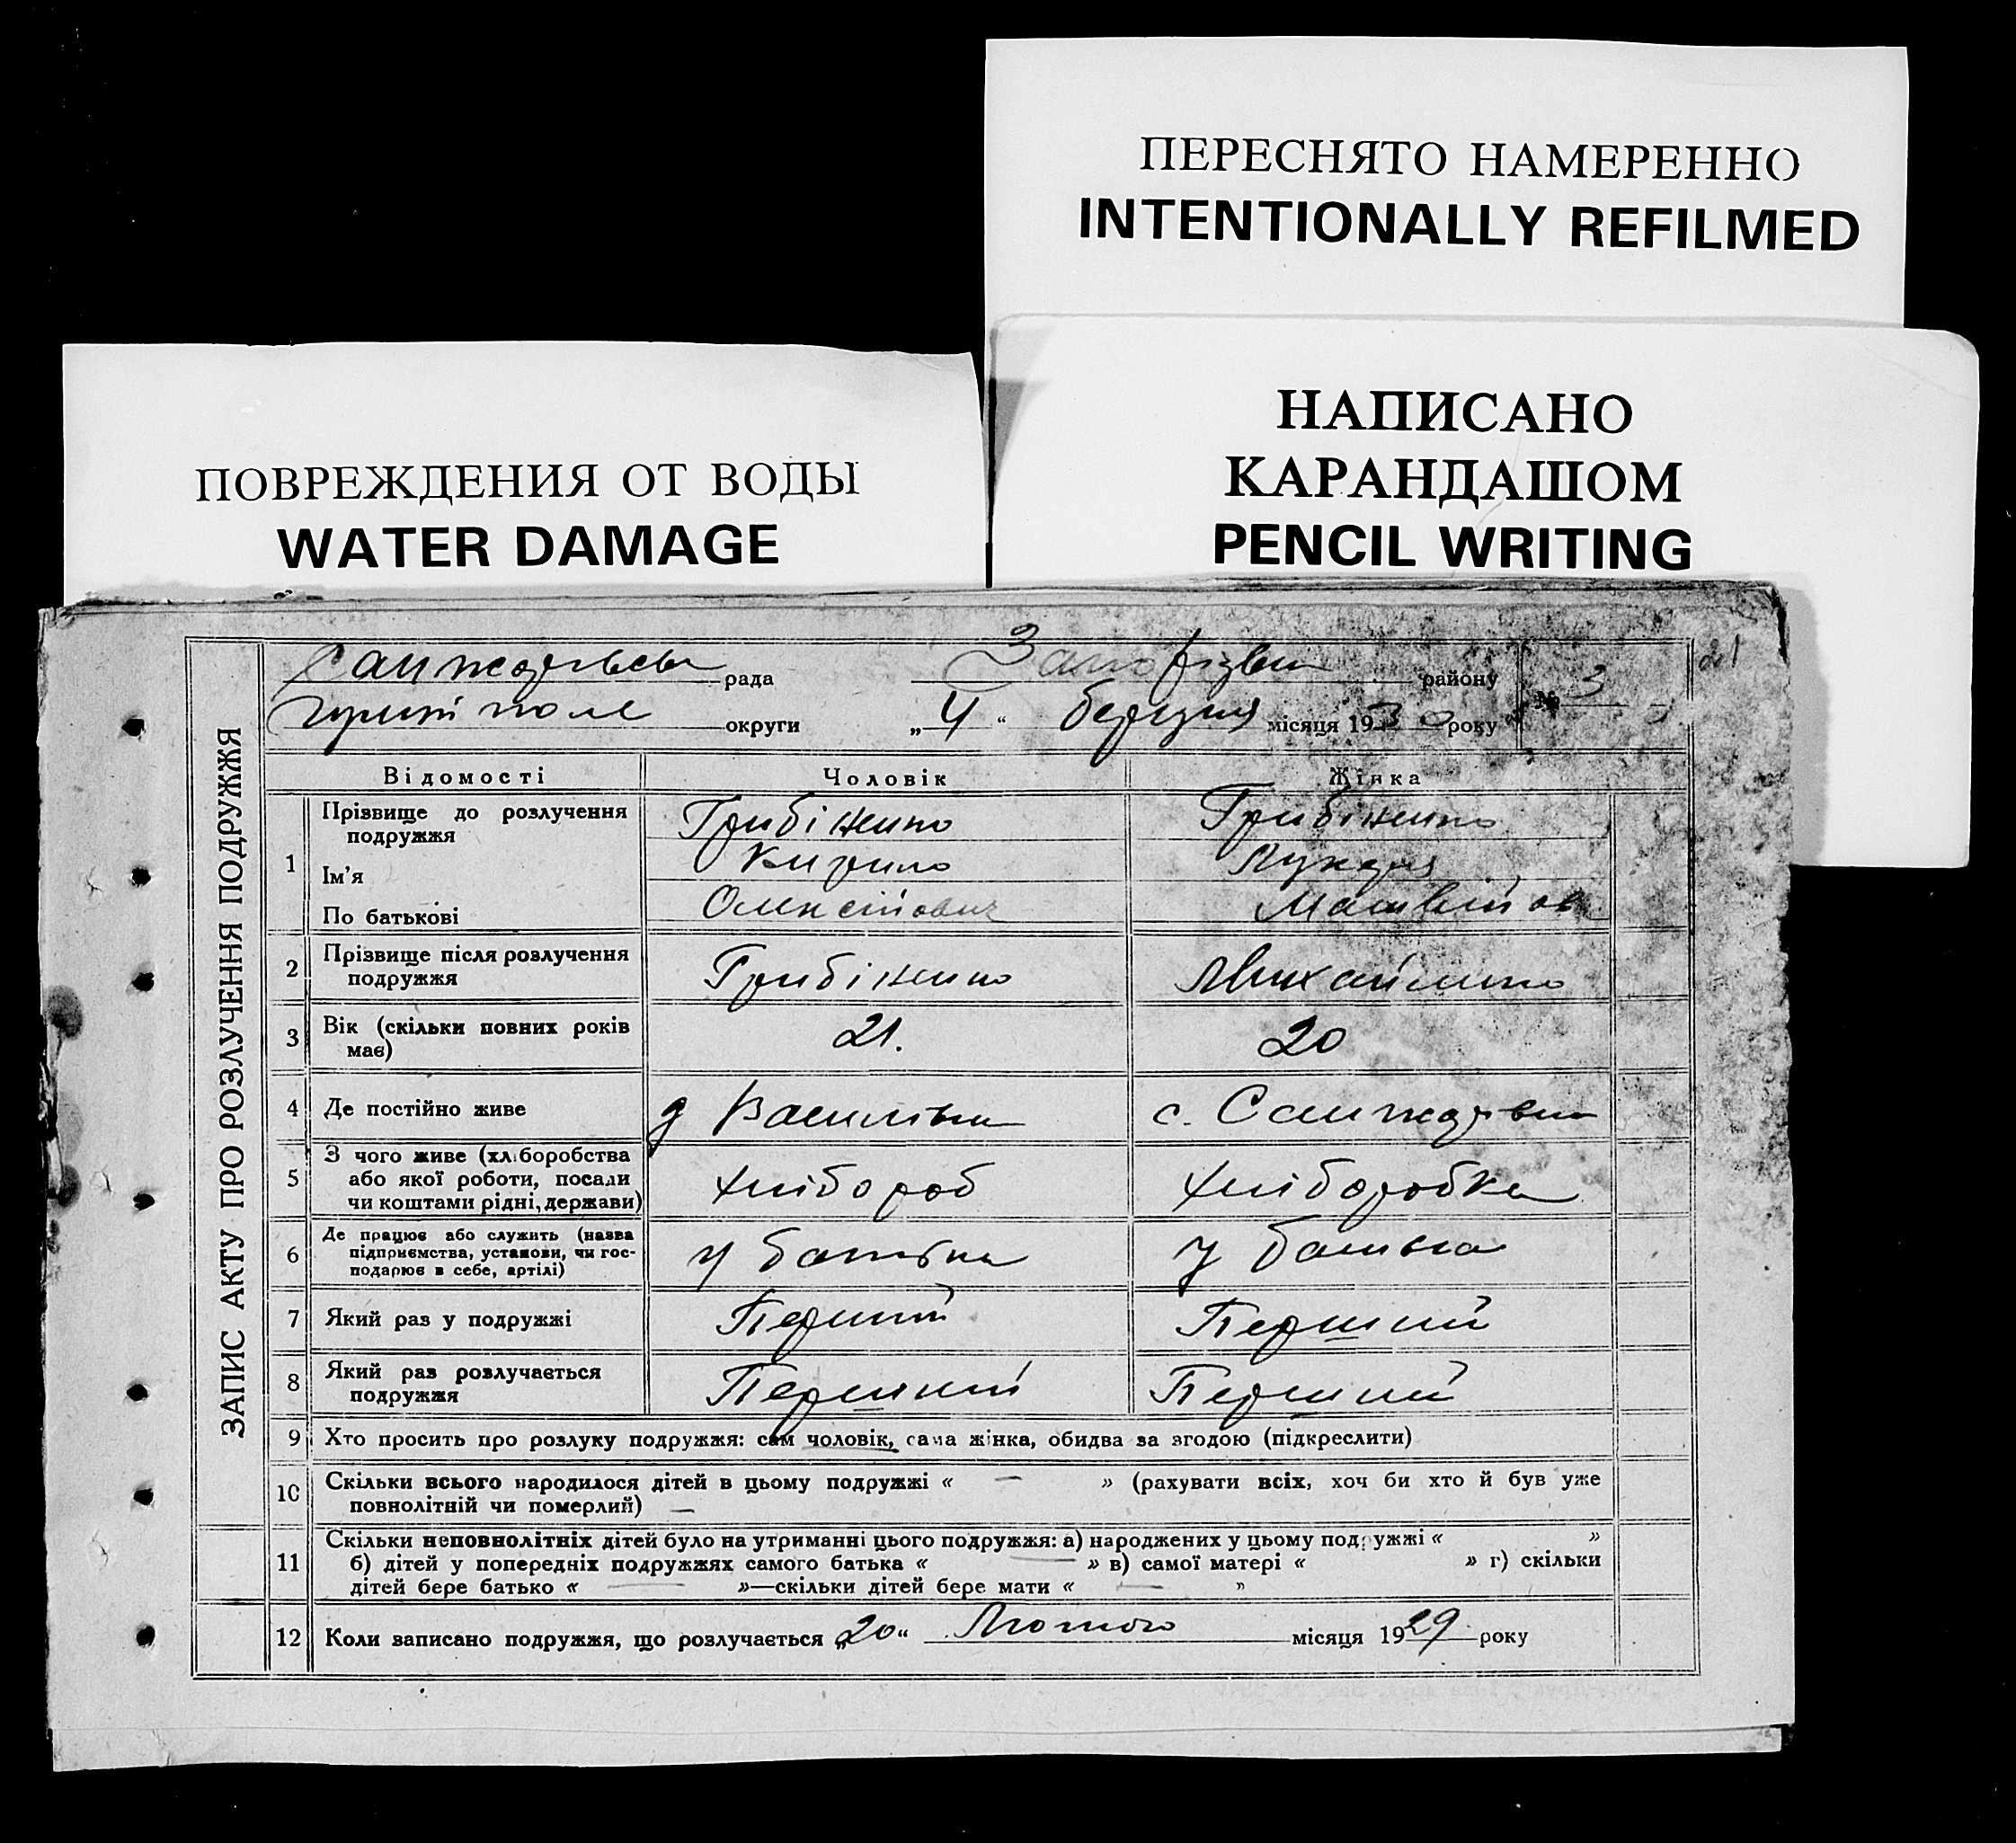 ПЕРЕСНЯТО НАМЕРЕННО
INTENTIONALLY REFILMED
НАПИСАНО
КАРАНДАШОМ
PENCIL WRITING
ПОВРЕЖДЕНИЯ ОТ ВОДЫ
WATER DAMAGE
21
ЗАПИС АКТУ ПРО РОЗЛУЧЕННЯ ПОДРУЖЖЯ
рада району № 3
округи „4“ березня місяця 1930 року
Відомості Чоловік Жінка
1 Прізвище до розлучення подружжя Грибіненко Грибіненко
Ім'я Кирило Лукеря
По батькові Олексійович Матвійов
2 Прізвище після розлучення подружжя Грибіненко Михайленко
3 Вік (скільки повних років має) 21. 20
4 Де постійно живе Василівка с.
5 З чого живе (хліборобства або якої роботи, посади чи коштами рідні, держави) хлібороб хліборобка
6 Де працює або служить (назва підприємства, установи, чи господарює в себе, артілі) у батька у батька
7 Який раз у подружжі Перший Перший
8 Який раз розлучається подружжя Перший Перший
9 Хто просить про розлуку подружжя: сам чоловік, сама жінка, обидва за згодою (підкреслити)
10 Скільки всього народилося дітей в цьому подружжі « — » (рахувати всіх, хоч би хто й був уже
повнолітній чи померлий) —
11 Скільки неповнолітніх дітей було на утриманні цього подружжя: а) народжених у цьому подружжі « »
б) дітей у попередніх подружжях самого батька « — » в) самої матері « » г) скільки
дітей бере батько « — »—скільки дітей бере мати « — »
12 Коли записано подружжя, що розлучається „20“ Лютого місяця 1929 року